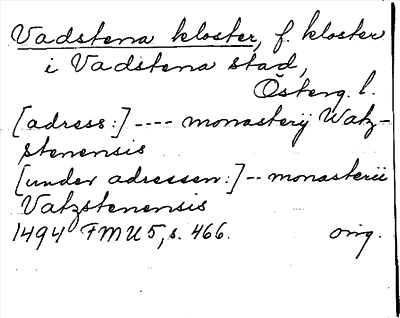 Vadstena kloster, f. kloster
i Vadstena stad,
Österg. l.
[adress:] ---- monasterij Watz-
stenensis
[under adressen:] -- monasterii
Vatzstenensis
1494 FMU 5, s. 466. orig.